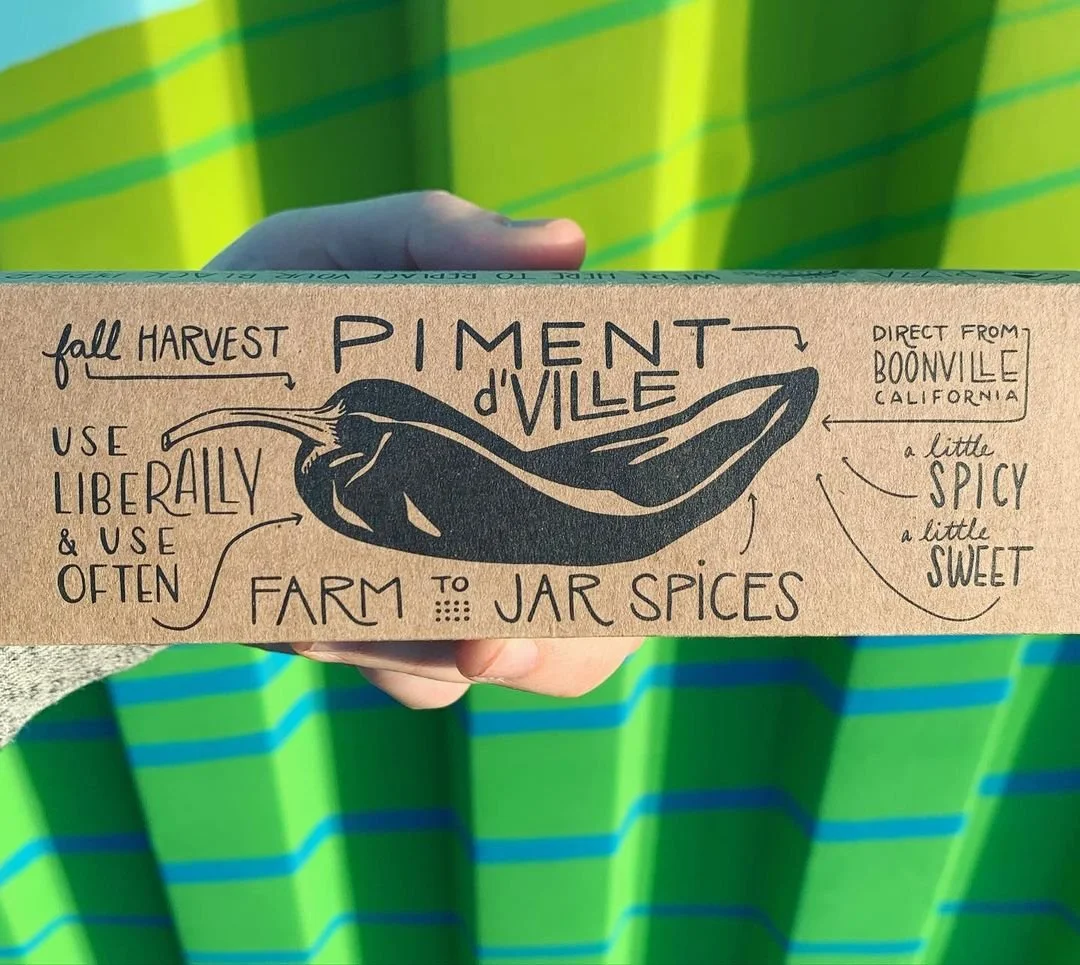 WE'RE HERE TO REPLACE YOUR BLACK PEPPER
fall HARVEST
PIMENT
d'VILLE
DIRECT FROM
BOONVILLE
CALIFORNIA
USE
LIBERALLY
& USE
OFTEN
a little
SPICY
a little
SWEET
FARM TO JAR SPICES